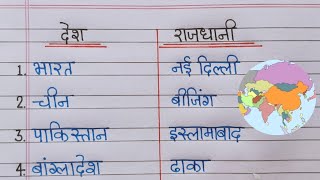 देश राजधानी
1. भारत नई दिल्ली
2. चीन बीजिंग
3. पाकिस्तान इस्लामाबाद
4. बांग्लादेश ढाका